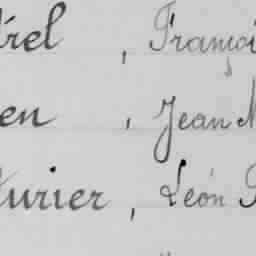 rel, Françoi
en, Jean M
urier, Léon